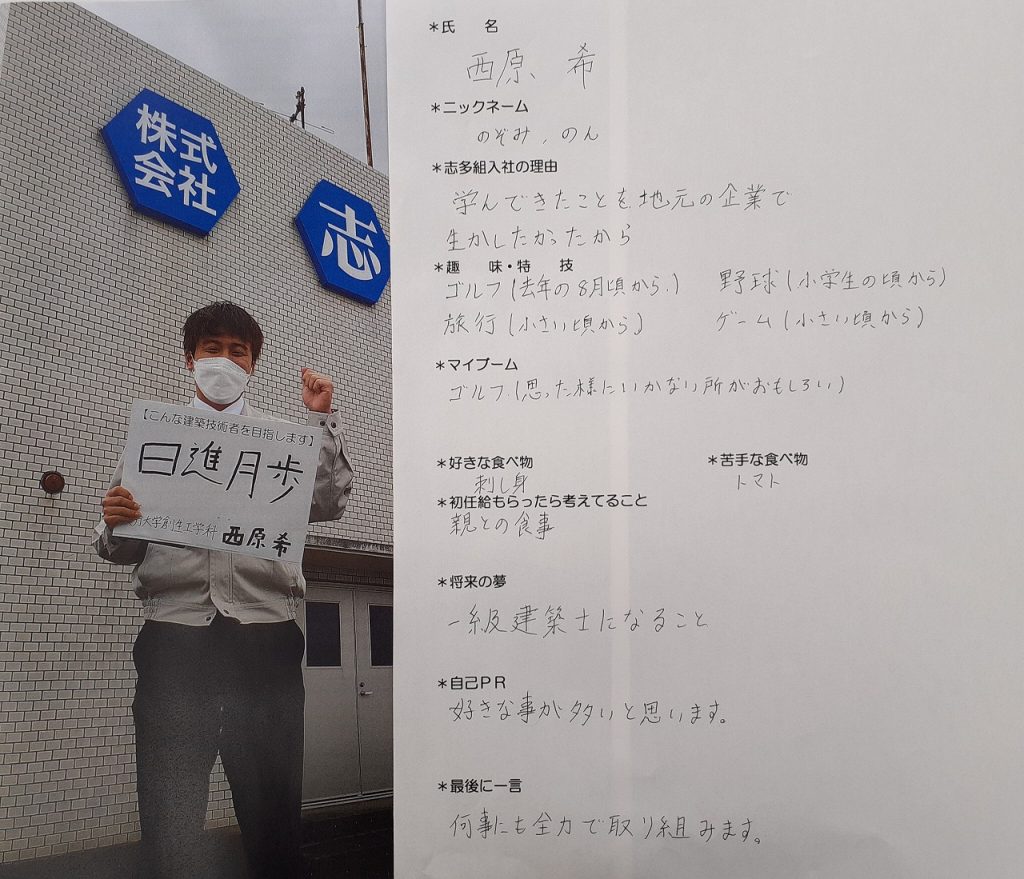 株式
会社
志
【こんな建築技術者を目指します】
日進月歩
大学創生工学科 西原希
＊氏　名
西原、希
＊ニックネーム
のぞみ、のん
＊志多組入社の理由
学んできたことを地元の企業で
生かしたかったから
＊趣　味・特　技
ゴルフ(去年の8月頃から.)　野球(小学生の頃から)
旅行(小さい頃から)　ゲーム(小さい頃から)
＊マイブーム
ゴルフ.(思った様にいかない所がおもしろい)
＊好きな食べ物　＊苦手な食べ物
刺し身　トマト
＊初任給もらったら考えてること
親との食事
＊将来の夢
一級建築士になること
＊自己ＰＲ
好きな事が多いと思います。
＊最後に一言
何事にも全力で取り組みます。